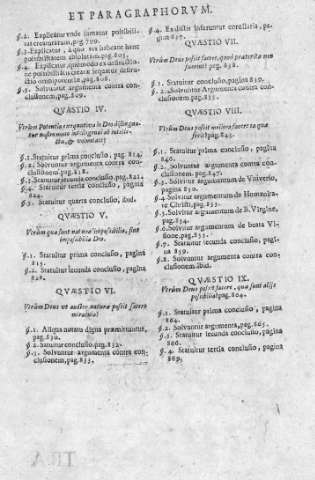 ET PARAGRAPHORVM.
§.2. Explicatur unde sumant possibili-
tatem creaturarum, pag. 799.
§.3. Explicatur, à quo res habeant hanc
possibilitatem absolutam, pag. 805.
§.4. Explicatur quomodo ex
pag. 808.
§.5. Solvuntur argumenta contra con-
clusionem, pag. 809.
QVÆSTIO IV.
Verùm Potentia executiva in Deo distingua-
tur
§.1. Statuitur prima conclusio, pag. 814.
§.2. Solvuntur argumenta contra con-
clusionem, pag. 818.
§.3. Statuitur secunda conclusio, pag. 821.
§.4. Statuitur tertia conclusio, pag.
824.
§.5. Statuitur quarta conclusio, ibid.
QVÆSTIO V.
Verùm qua sunt natura impossibilia, sint
impossibilia Deo.
§.1. Statuitur prima conclusio, pagina
825.
§.2. Statuitur secunda conclusio, pagina
828.
QVÆSTIO VI.
Verùm Deus ut auctor naturæ possit facere
miracula?
§.1. Aliqua notatu digna præmittuntur,
pag. 830.
§.2. Statuitur conclusio, pag. 832.
§.3. Solvuntur argumenta contra con-
clusionem, pag. 833.
§.4. Ex dictis inferuntur corollaria, pa-
gina 837.
QVÆSTIO VII.
Verùm Deus possit facere, quod præterita non
fuerint? pag. 838.
§.1. Statuitur conclusio, pagina 839.
§.2. Solvuntur argumenta contra con-
clusionem, pag.
QVÆSTIO VIII.
Verùm Deus possit meliora facere
fecit? pag. 845.
§.1. Statuitur prima conclusio, pagina
846.
§.2. Solvuntur argumenta contra con-
clusionem, pag. 847.
§.3. Solvitur argumentum de Vniverso,
pagina 850.
§.4. Solvitur argumentum de Humanita-
te Christi, pag. 853.
§.5. Solvitur argumentum de B. Virgine,
pag. 854.
§.6. Solvitur argumentum de beata Vi-
sione, pag. 855.
§.7. Statuitur secunda conclusio, pagi-
na 859.
§.8. Solvuntur argumenta contra con-
clusionem, ibid.
QVÆSTIO IX.
Verùm Deus possit facere, quæ sunt aliis
possibilia? pag. 804.
§.1. Statuitur prima conclusio, pagina
864.
§.2. Solvuntur argumenta, pag. 865.
§.3. Statuitur secunda conclusio, pagina
866.
§.4. Statuitur tertia conclusio, pagina
869.